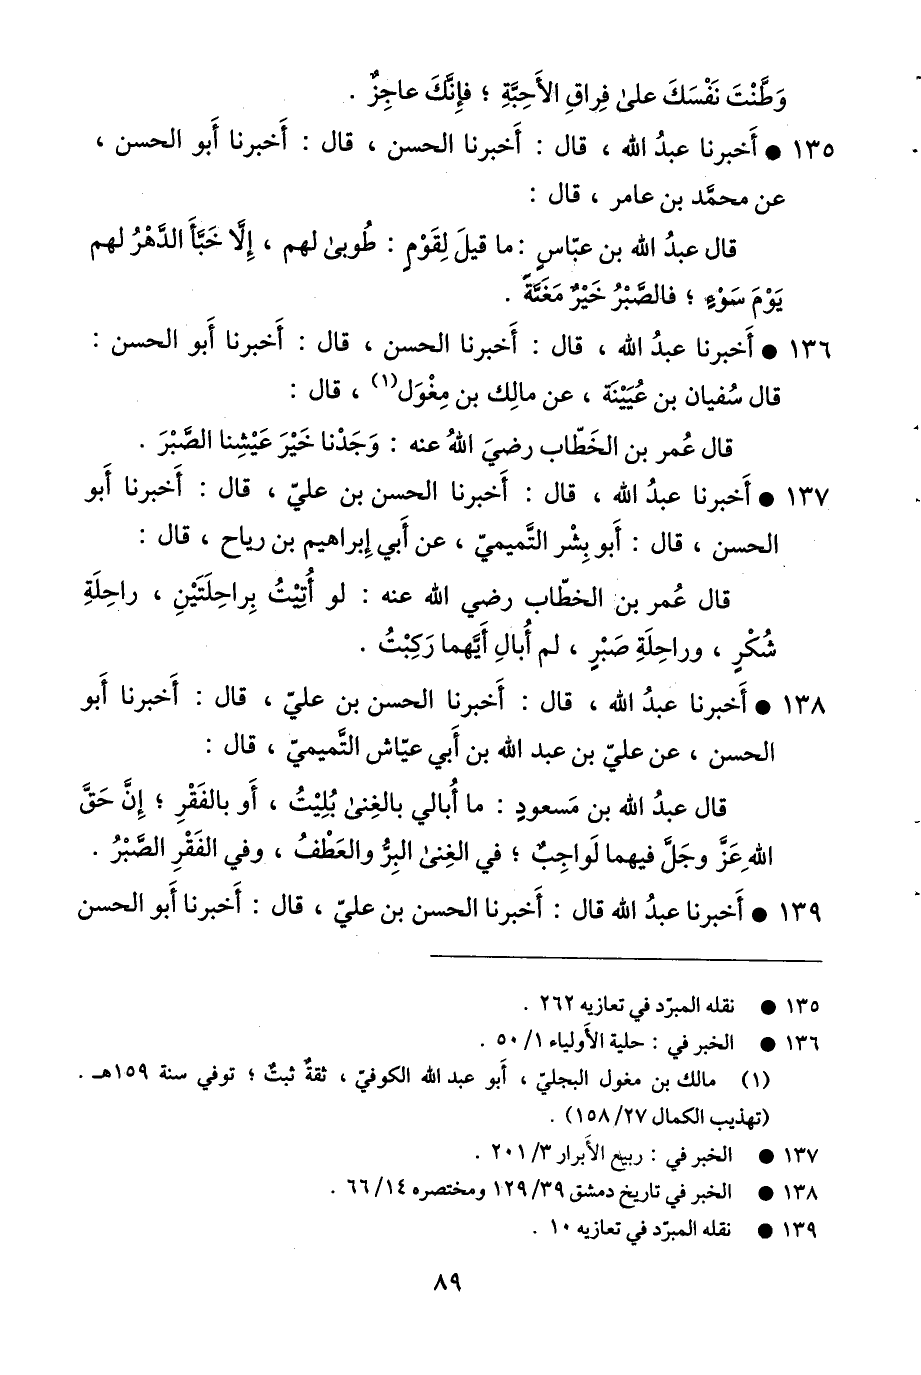 وَطَّنْتَ نَفْسَكَ علىٰ فِراقِ الأَحِبَّةِ ؛ فإِنَّكَ عاجِزٌ .
١٣٥ ● أَخبرنا عبدُ الله ، قال : أَخبرنا الحسن ، قال : أَخبرنا أَبو الحسن ،
عن محمَّد بن عامر ، قال :
قال عبدُ الله بن عبّاسٍ : ما قيلَ لِقَوْمٍ : طُوبىٰ لهم ، إِلَّا خَبَّأَ الدَّهْرُ لهم
يَوْمَ سَوْءٍ ؛ فالصَّبْرُ خَيْرٌ مَغَبَّةً .
١٣٦ ● أَخبرنا عبدُ الله ، قال : أَخبرنا الحسن ، قال : أَخبرنا أَبو الحسن :
قال سُفيان بن عُيَيْنَة ، عن مالِك بن مِغْوَل(١) ، قال :
قال عُمر بن الخَطّاب رضيَ اللهُ عنه : وَجَدْنا خَيْرَ عَيْشِنا الصَّبْرَ .
١٣٧ ● أَخبرنا عبدُ الله ، قال : أَخبرنا الحسن بن عليّ ، قال : أَخبرنا أَبو
الحسن ، قال : أَبو بِشْر التَّميميّ ، عن أَبي إِبراهيم بن رياح ، قال :
قال عُمر بن الخطّاب رضي الله عنه : لو أُتِيْتُ بِراحِلَتَيْنِ ، راحِلَةِ
شُكْرٍ ، وراحِلَةِ صَبْرٍ ، لم أُبالِ أَيَّهما رَكِبْتُ .
١٣٨ ● أَخبرنا عبدُ الله ، قال : أَخبرنا الحسن بن عليّ ، قال : أَخبرنا أَبو
الحسن ، عن عليّ بن عبد الله بن أَبي عيّاش التَّميميّ ، قال :
قال عبدُ الله بن مَسعودٍ : ما أُبالي بالغِنىٰ بُلِيْتُ ، أَو بالفَقْرِ ؛ إِنَّ حَقَّ
اللهِ عَزَّ وجَلَّ فيهما لَواجِبٌ ؛ في الغِنىٰ البِرُّ والعَطْفُ ، وفي الفَقْرِ الصَّبْرُ .
١٣٩ ● أَخبرنا عبدُ الله قال : أَخبرنا الحسن بن عليّ ، قال : أَخبرنا أَبو الحسن
١٣٥ ● نقله المبرّد في تعازيه ٢٦٢ .
١٣٦ ● الخبر في : حلية الأَولياء ١/ ٥٠ .
(١) مالك بن مغول البجليّ ، أَبو عبد الله الكوفيّ ، ثقةٌ ثبتٌ ؛ توفي سنة ١٥٩هـ .
(تهذيب الكمال ٢٧/ ١٥٨) .
١٣٧ ● الخبر في : ربيع الأَبرار ٣/ ٢٠١ .
١٣٨ ● الخبر في تاريخ دمشق ٣٩/ ١٢٩ ومختصره ١٤/ ٦٦ .
١٣٩ ● نقله المبرّد في تعازيه ١٠ .
٨٩